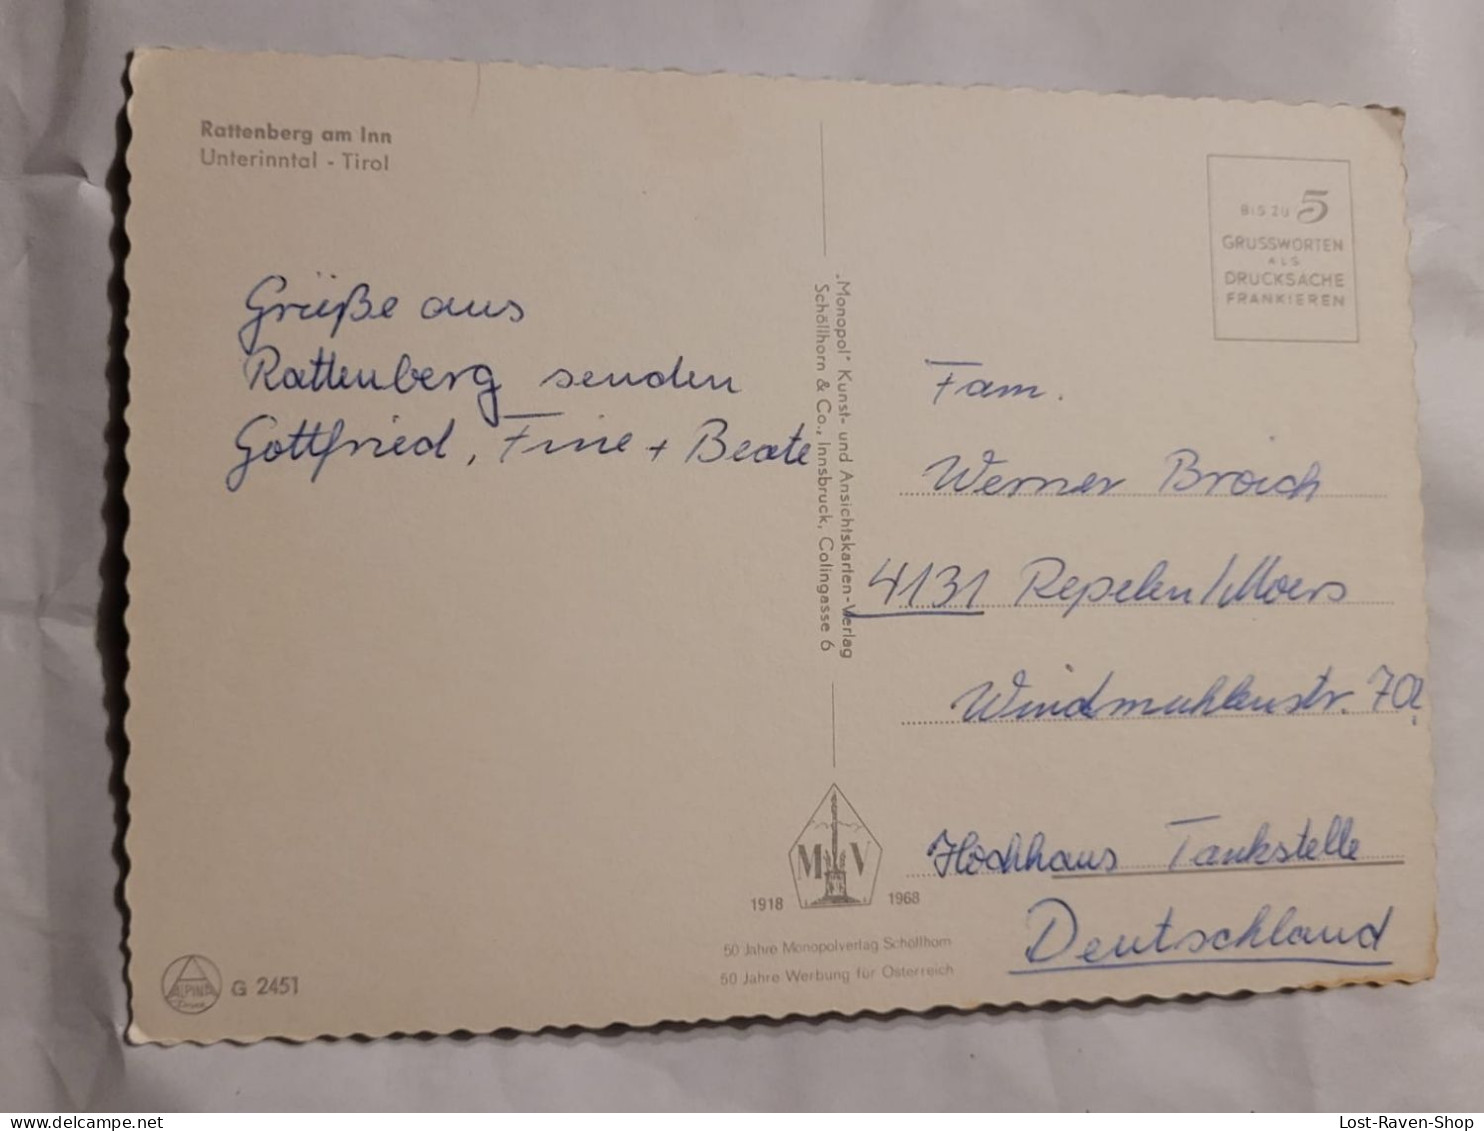 Rattenberg am Inn
Unterinntal - Tirol
Grüße aus
Rattenberg senden
Gottfried, Fine + Beate
"Monopol" Kunst- und Ansichtskarten-Verlag
Schöllhorn & Co., Innsbruck, Colingasse 6
BIS ZU 5
GRUSSWORTEN
ALS
DRUCKSACHE
FRANKIEREN
Fam.
Werner Broich
4131 Repelen/Moers
Windmuhlenstr. 70a
Hochhaus Tankstelle
Deutschland
M V
1918 1968
50 Jahre Monopolverlag Schöllhorn
50 Jahre Werbung für Österreich
ALPINA
Druck
G 2451
Lost-Raven-Shop